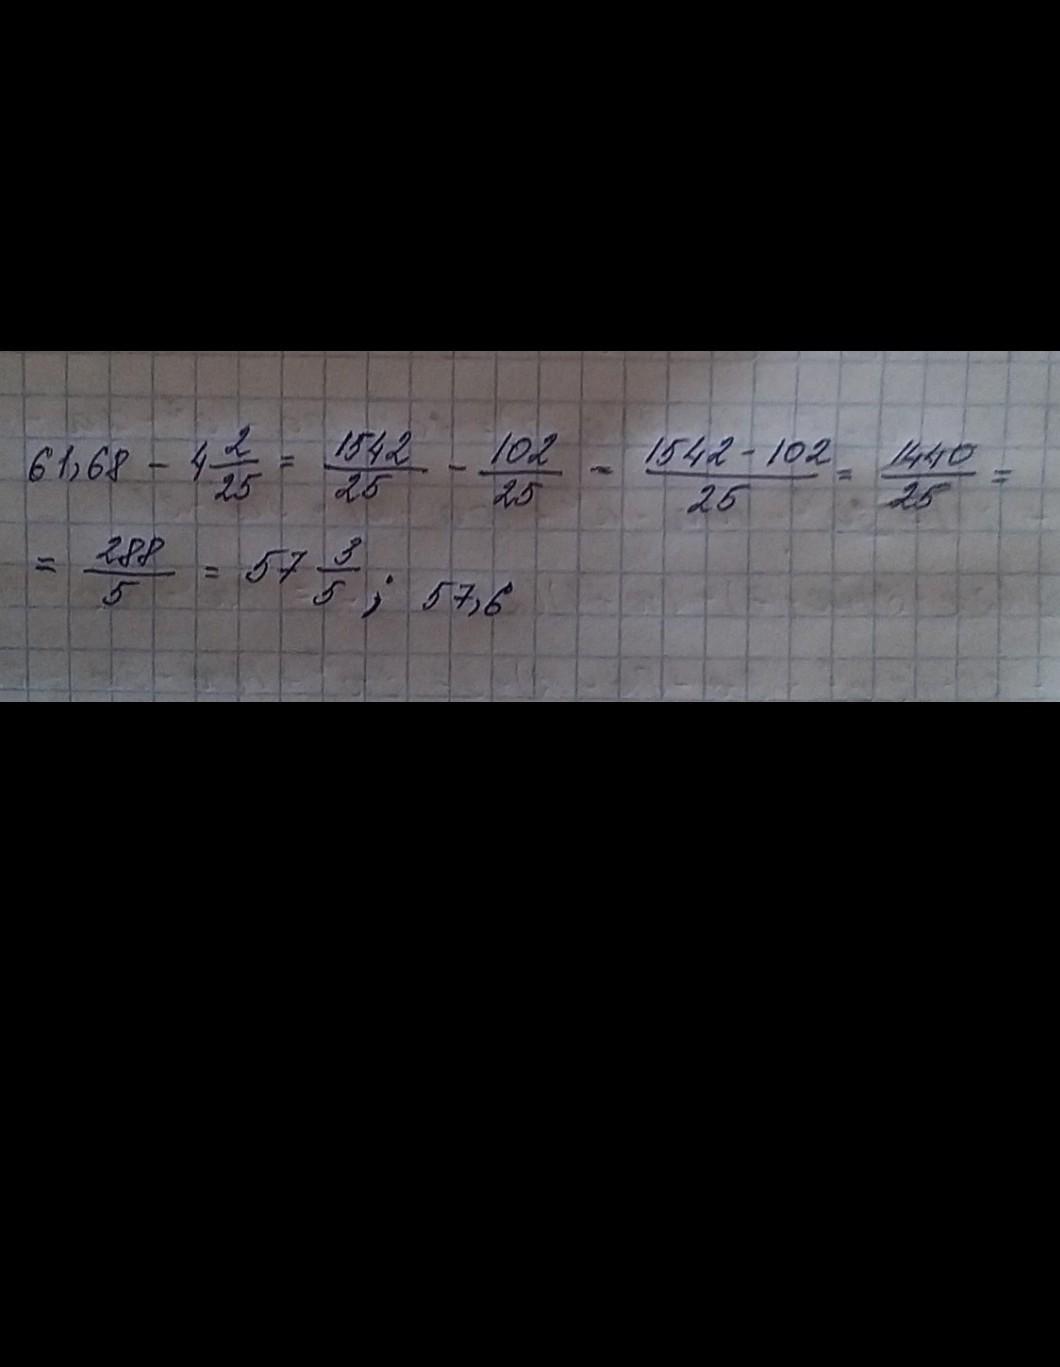 61,68 - 4 2/25 = 1542/25 - 102/25 = (1542 - 102)/25 = 1440/25 =
= 288/5 = 57 3/5 ; 57,6